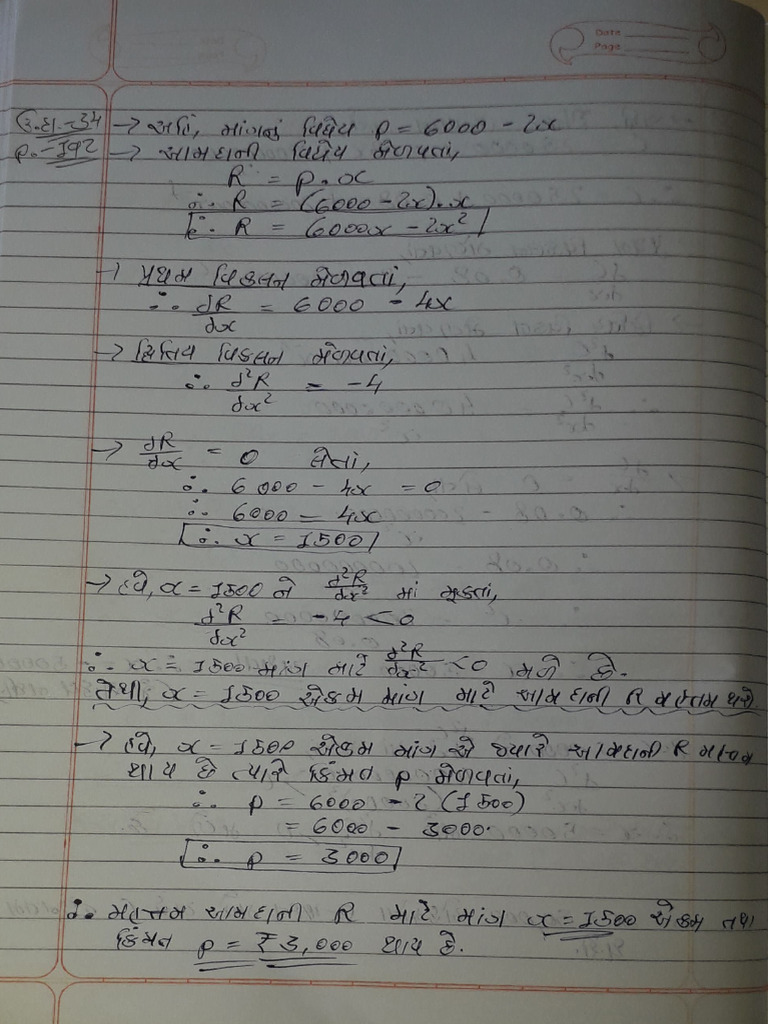 Date
Page
ઉ.દા.-34 → અહિં, માંગનું વિધેય p = 6000 - 2x
p.-192 → આમદાની વિધેય મેળવતાં,
R = p.x
∴ R = (6000 - 2x).x
∴ R = 6000x - 2x²
→ પ્રથમ વિકલન મેળવતાં,
∴ dR/dx = 6000 - 4x
→ દ્વિતિય વિકલન મેળવતાં,
∴ d²R/dx² = -4
→ dR/dx = 0 લેતાં,
∴ 6000 - 4x = 0
∴ 6000 = 4x
∴ x = 1500
→ હવે, x = 1500 ને d²R/dx² માં મૂકતાં,
d²R/dx² = -4 < 0
∴ x = 1500 માંગ માટે d²R/dx² < 0 મળે છે.
તેથી, x = 1500 એકમ માંગ માટે આમદાની R મહત્તમ થશે
→ હવે, x = 1500 એકમ માંગ એ જ્યારે આમદાની R મહત્તમ
થાય છે ત્યારે કિંમત p મેળવતાં,
∴ p = 6000 - 2(1500)
= 6000 - 3000.
∴ p = 3000
∴ મહત્તમ આમદાની R માટે માંગ x = 1500 એકમ તથા
કિંમત p = ₹3,000 થાય છે.